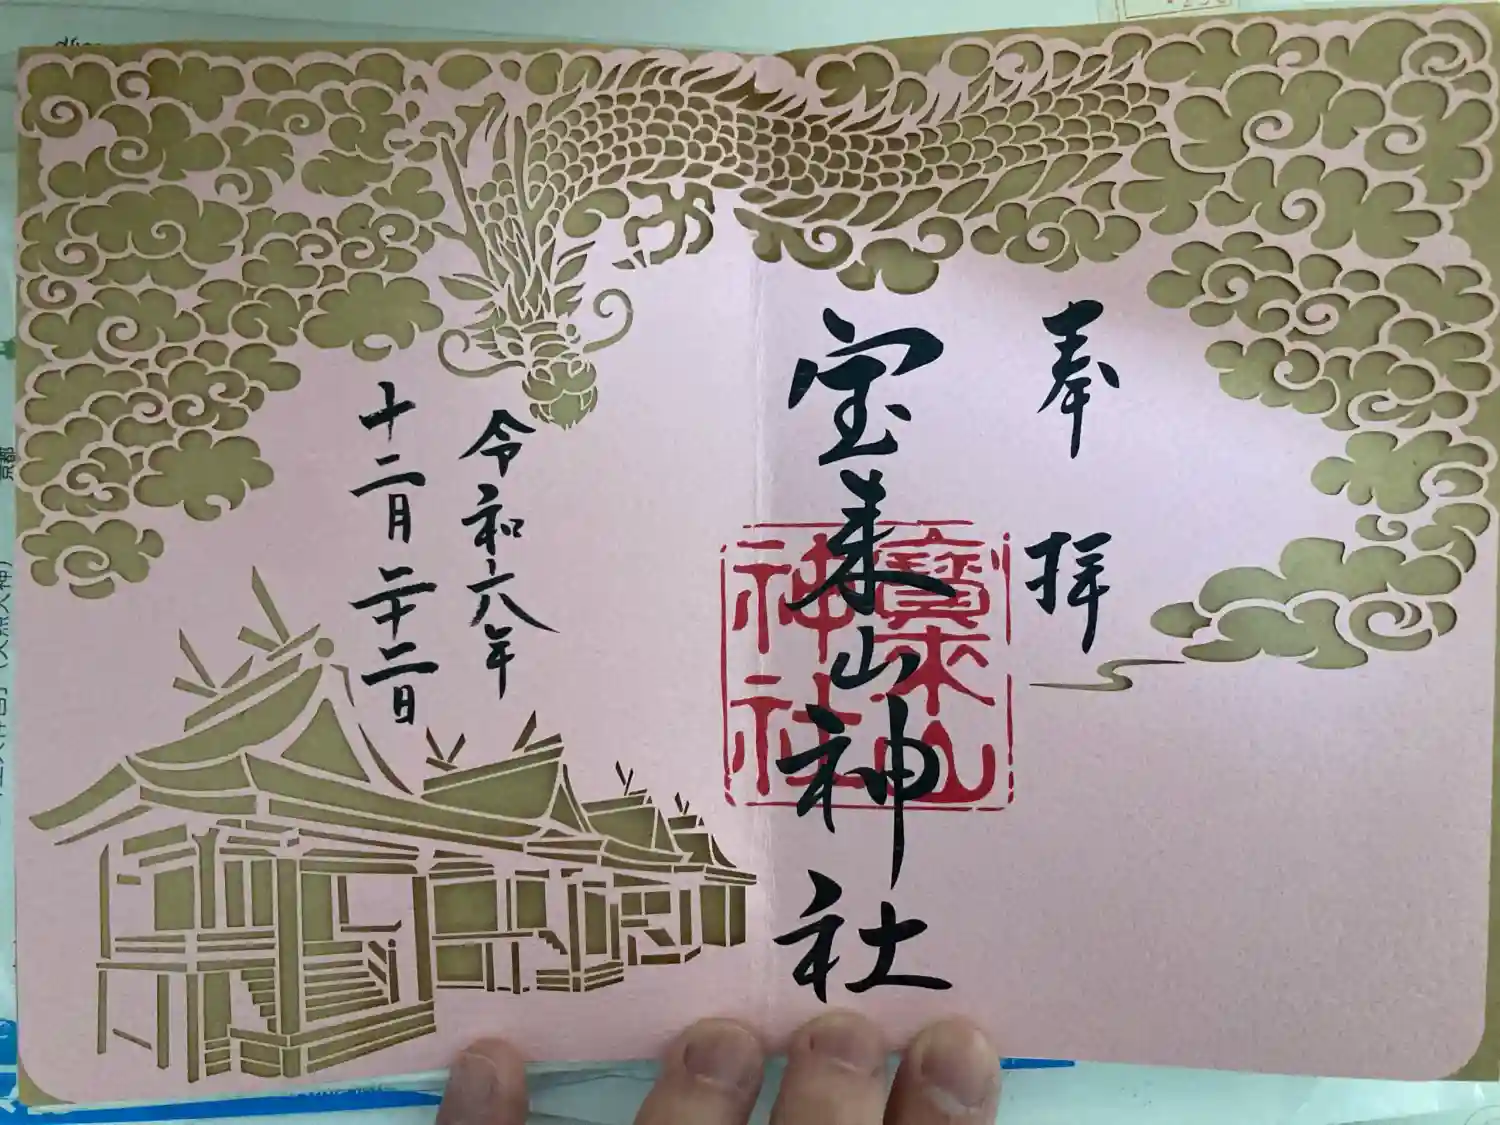 奉拝
宝来山神社
寶来山
神社
令和六年
十二月二十二日
京都